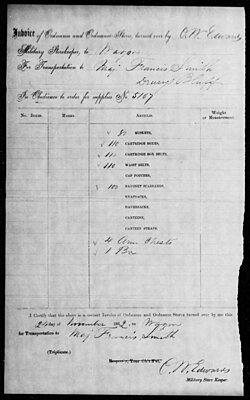 Invoice of Ordnance and Ordnance Stores, turned over by C. W. Edwards
Military Storekeeper, to Wagon
For Transportation to Maj. Francis Smith
Drewry's Bluff
In Obedience to order for supplies No. 5167
No. ITEMS. MARKS. ARTICLES. WEIGHT or MEASUREMENT.
80 MUSKETS,
110 CARTRIDGE BOXES,
110 CARTRIDGE BOX BELTS,
110 WAIST BELTS,
CAP POUCHES,
100 BAYONET SCABBARDS,
KNAPSACKS,
HAVERSACKS,
CANTEENS,
CANTEEN STRAPS,
4 Arm Chests
1 Box
I Certify that the above is a correct Invoice of Ordnance and Ordnance Stores turned over by me this
24 day of November 1862, to Wagon
for Transportation to Maj. Francis Smith
(Triplicate.)
C. W. Edwards
Military Store Keeper.